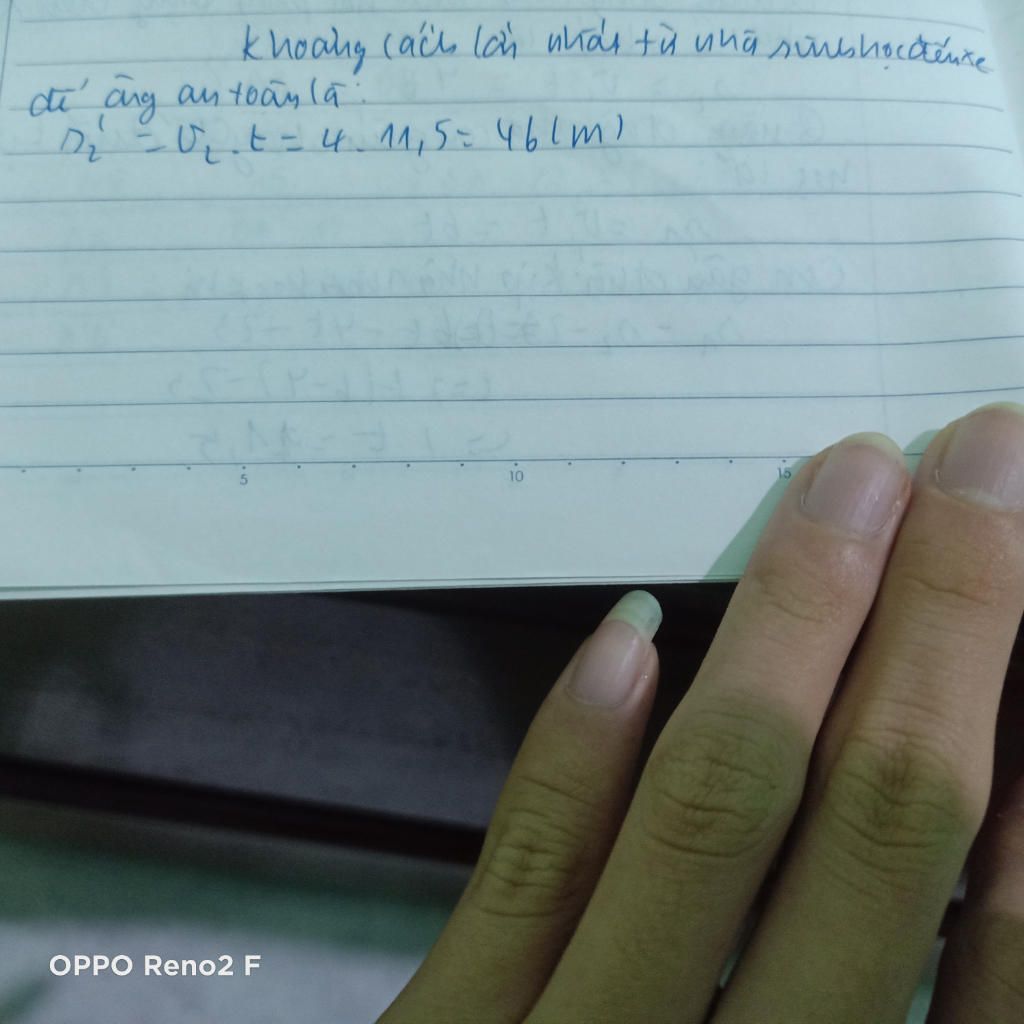 Khoảng cách lớn nhất từ nhà sinh học đến xe
để ông an toàn là:
s₂' = v₂.t = 4.11,5 = 46(m)
5 10 15
OPPO Reno2 F